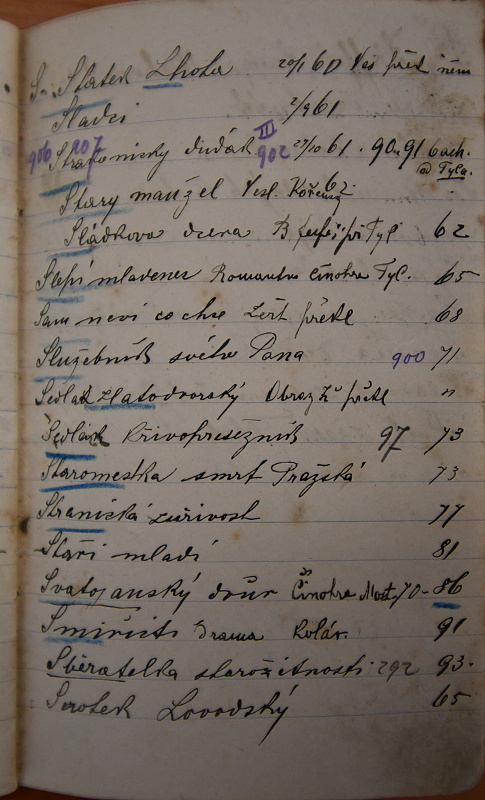 S. Statek Lhota 20/1 60 Ves před ním
Sladci 2/9 61
906 907 Strakonický dudák III 902 27/10 61. 90. 91 6 ach.
od Tyla.
Starý manžel Vesl. 62
Sládkova dcera Tyl 62
Slepí mladenec Romant. činohra Tyl. 65
Sam neví co chce Žert překl 68
Služebník svého Pana 900 71
Sedlak zlatodvorský Obraz překl "
Sedlák křivopřísežník 97 73
Staroměstka smrt Pražská 73
Stranická zuřivost 77
Staří mladí 81
Svatojanský dvůr Činohra Most. 70-86
Smiřičti Drama Kolár. 91
Sběratelka starožitností 292 93.
Sirotek Lovodský 65